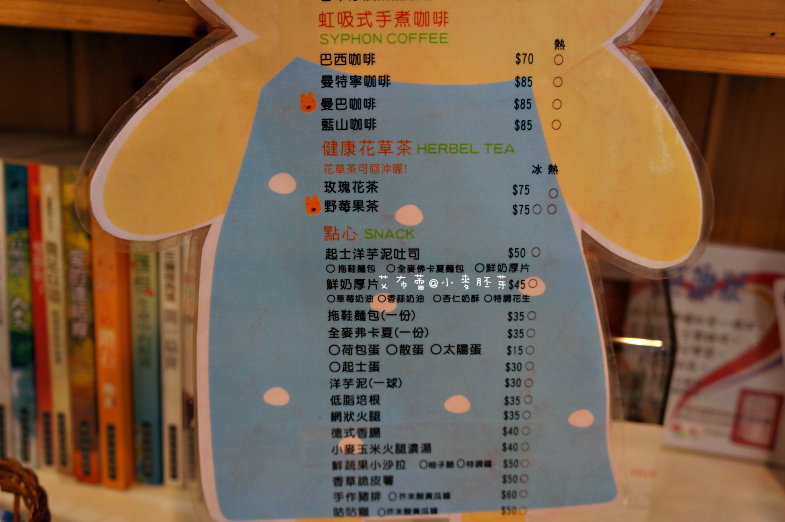 虹吸式手煮咖啡
SYPHON COFFEE
熱
巴西咖啡 $70 ○
曼特寧咖啡 $85 ○
曼巴咖啡 $85 ○
藍山咖啡 $85 ○
健康花草茶 HERBEL TEA
花草茶可回沖喔! 冰 熱
玫瑰花茶 $75 ○
野莓果茶 $75 ○ ○
點心 SNACK
起士洋芋泥吐司 $50 ○
○拖鞋麵包 ○全麥佛卡夏麵包 ○鮮奶厚片
艾布蕾@小麥胚芽
鮮奶厚片 $45 ○
○草莓奶油 ○香蒜奶油 ○杏仁奶酥 ○特調花生
拖鞋麵包(一份) $35 ○
全麥弗卡夏(一份) $35 ○
○荷包蛋 ○散蛋 ○太陽蛋 $15 ○
○起士蛋 $30 ○
洋芋泥(一球) $30 ○
低脂培根 $35 ○
網狀火腿 $35 ○
德式香腸 $40 ○
小麥玉米火腿濃湯 $40 ○
鮮蔬果小沙拉 ○柚子醋 ○特調醬 $50 ○
香草脆皮薯 $50 ○
手作豬排 ○芥末酸黃瓜醬 $60 ○
咕咕雞 ○芥末酸黃瓜醬 $50 ○